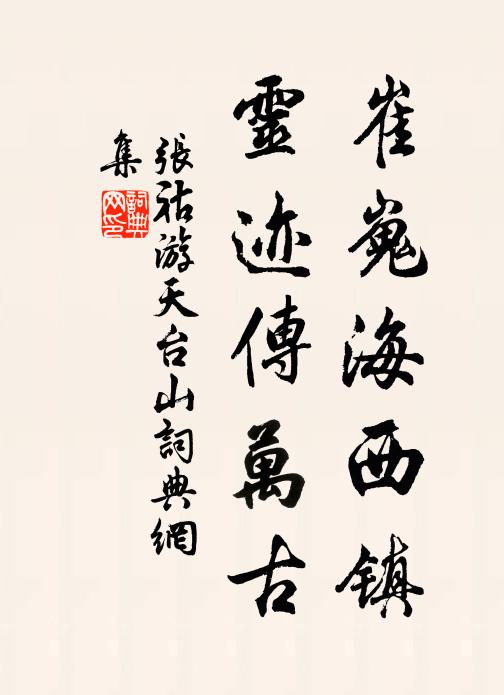 崔嵬海西镇
靈迹傳萬古
張祜游天台山詞典網
集
詞典网印